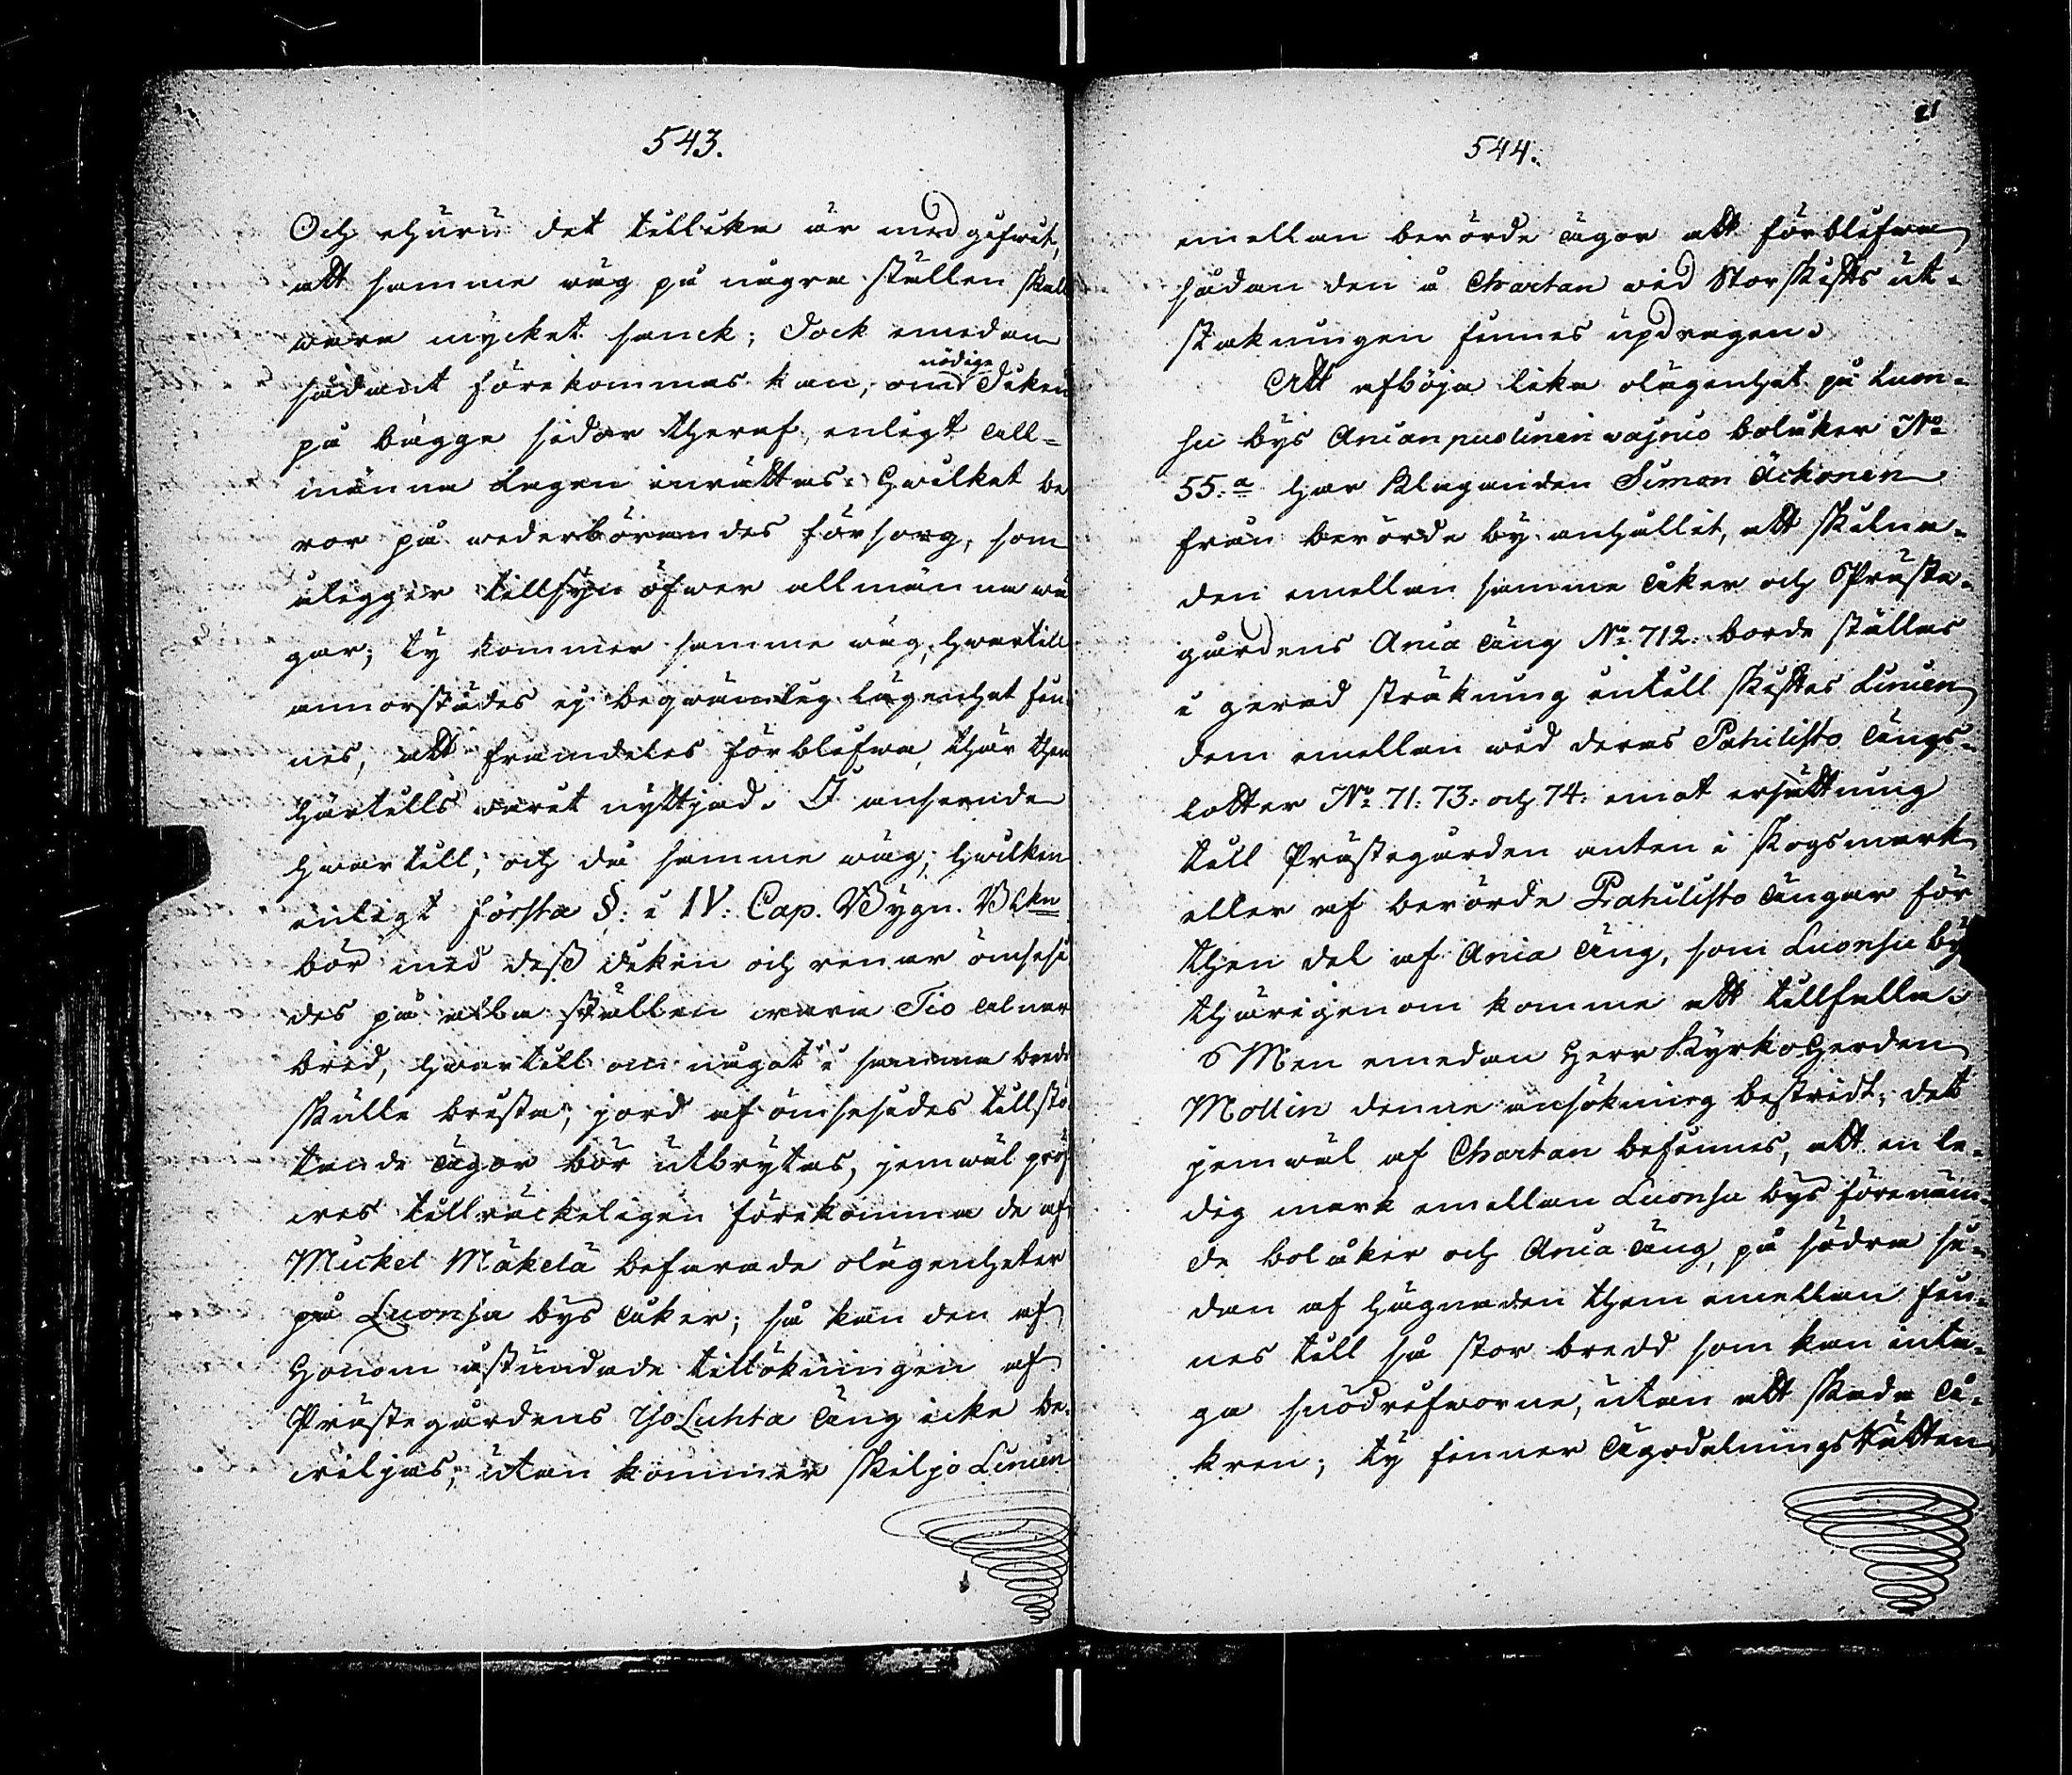 543.
Och ehuru det tillika är medgifwit,
att samme wäg på några ställen skall
wara mycket sanck; dock emedan
sådant förekommas kan, om nödige Diken
på bägge sidor theraf, enligt all-
männa Lagen inrättas: hwilket be
ror på wederbörandes försorg, som
åligger tillsyn öfwer allmänna wä
gar; ty kommer samme wäg, hwartill
annorstädes ej beqwämlig lägenhet fin-
nes, att framdeles förblifwa, thär then
härtills warit nyttjad. I anseende
hwartill, och då samme wäg, hwilken
enligt första §: i IV: Cap. Bygn. Blkn
bör med dess diken och renar ömsesi
des på alla ställen wara Tio alnar
bred, hwartill om något i samma bredd
skulle brista, jord af ömsesides tillstö
tande ägor bör utbrytas, jemwäl pröf
wes tillräckeligen förekomma de af
Mickel Mäkelä befarade olägenheter
på Luonsa bys åker; så kan den af
honom åstundade tillökningen af
Prästegårdens Yso Luhta äng icke be-
wiljas, utan kommer skiljo Linien
544.
21
emellan berörde ägor att förblifwa
sådan den å Chartan wid Storskifts ut-
stakningen finnes updragen.
Att afböja lika olägenhet på Luon-
su bys Anianpuolinen wajnio bolåker No
55.a har Klaganden Simon Äckonen
från berörde by anhållit, att skilna-
den emellan samme åker och Präste-
gårdens Ania äng No 712. borde ställas
i gerad sträkning intill skiftes Linien
dem emellan wid deras Pahilisto ängs-
lotter No 71: 73: och 74: emot ersättning
till Prästegården anten i Skogsmark
eller af berörde Pahilisto ängar för
then del af Ania äng, som Luonsu by
thärigenom komme att tillfalla.
Men emedan Herr Kyrkoherden
Mollin denne ansökning bestridt; det
jemwäl af Chartan befinnes, att en le-
dig mark emellan Luonsu bys förenäm-
de bolåker och Ania äng, på södra si-
dan af hägnaden them emellan fin-
nes till så stor bredd som kan inta-
ga snödrifworne, utan att skada å-
kren; ty finner ÄgodelningsRätten